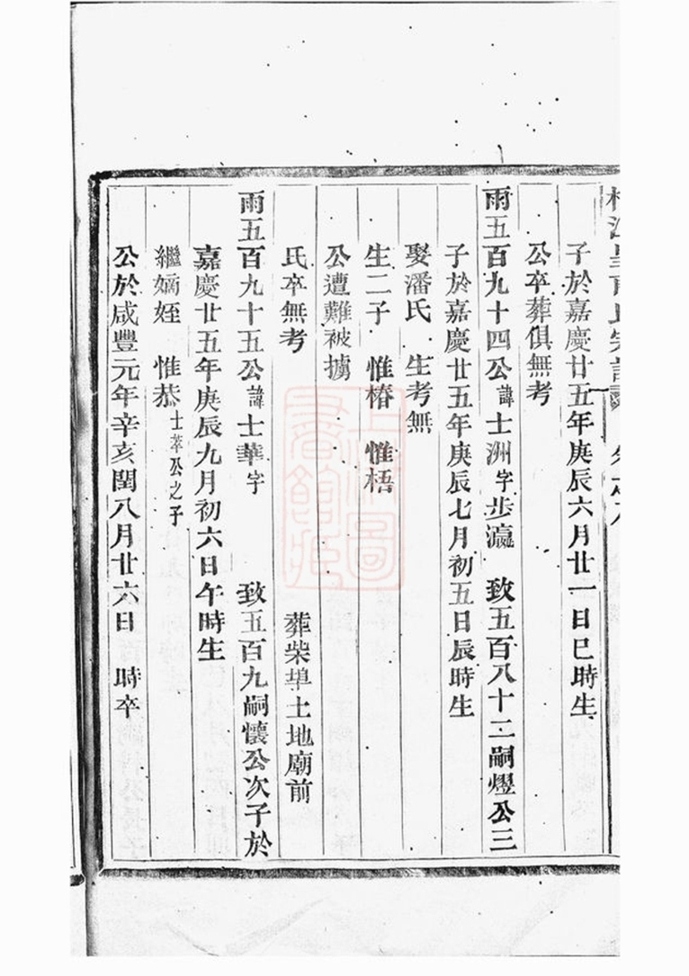 子於嘉慶廿五年庚辰六月廿一日巳時生
公卒葬俱無考
雨五百九十四公諱士洲字步瀛 致五百八十二嗣燈公三
子於嘉慶廿五年庚辰七月初五日辰時生
娶潘氏 生考無
生二子 惟椿 惟梧
公遭難被擄
氏卒無考 葬柴埠土地廟前
雨五百九十五公諱士華字 致五百九嗣懷公次子於
嘉慶廿五年庚辰九月初六日午時生
繼嫡姪 惟恭士萃公之子
公於咸豐元年辛亥閏八月廿六日 時卒